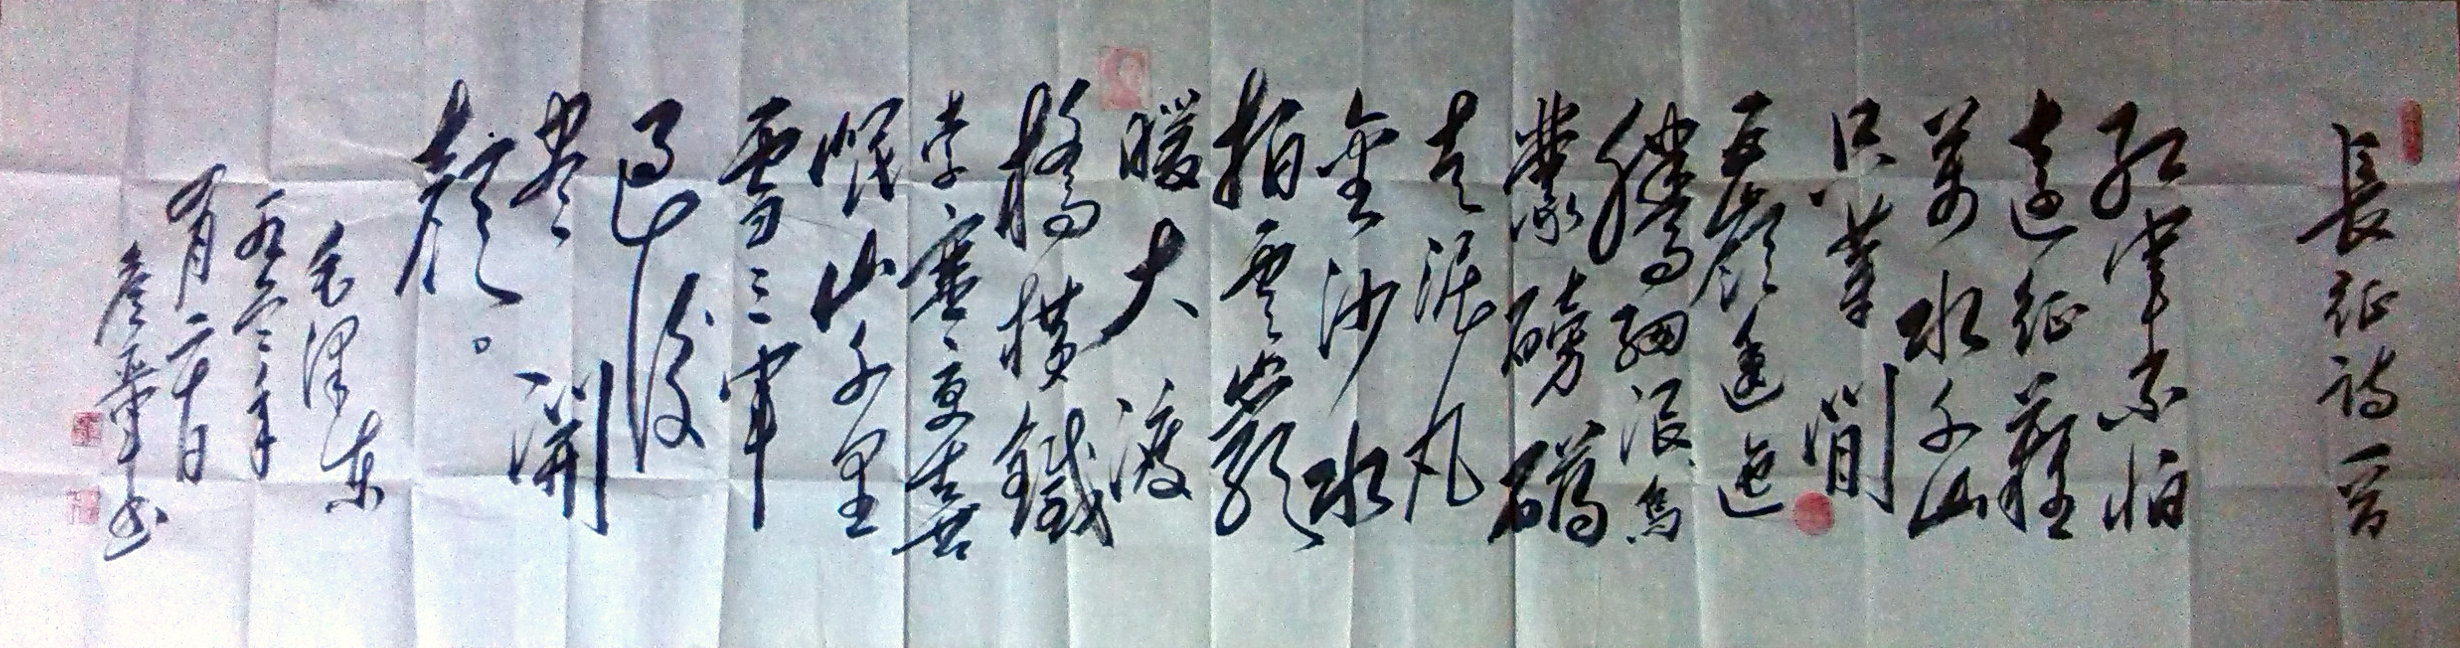 長征詩一首
红军不怕
遠征難
萬水千山
只等閒
五嶺逶迤
騰細浪烏
蒙磅礴
走泥丸
金沙水
拍雲崖
暖大渡
橋橫鐵
索寒更喜
岷山千里
雪三軍
過後
盡開
顏。
毛澤東
一九六二年
四月二十日
書